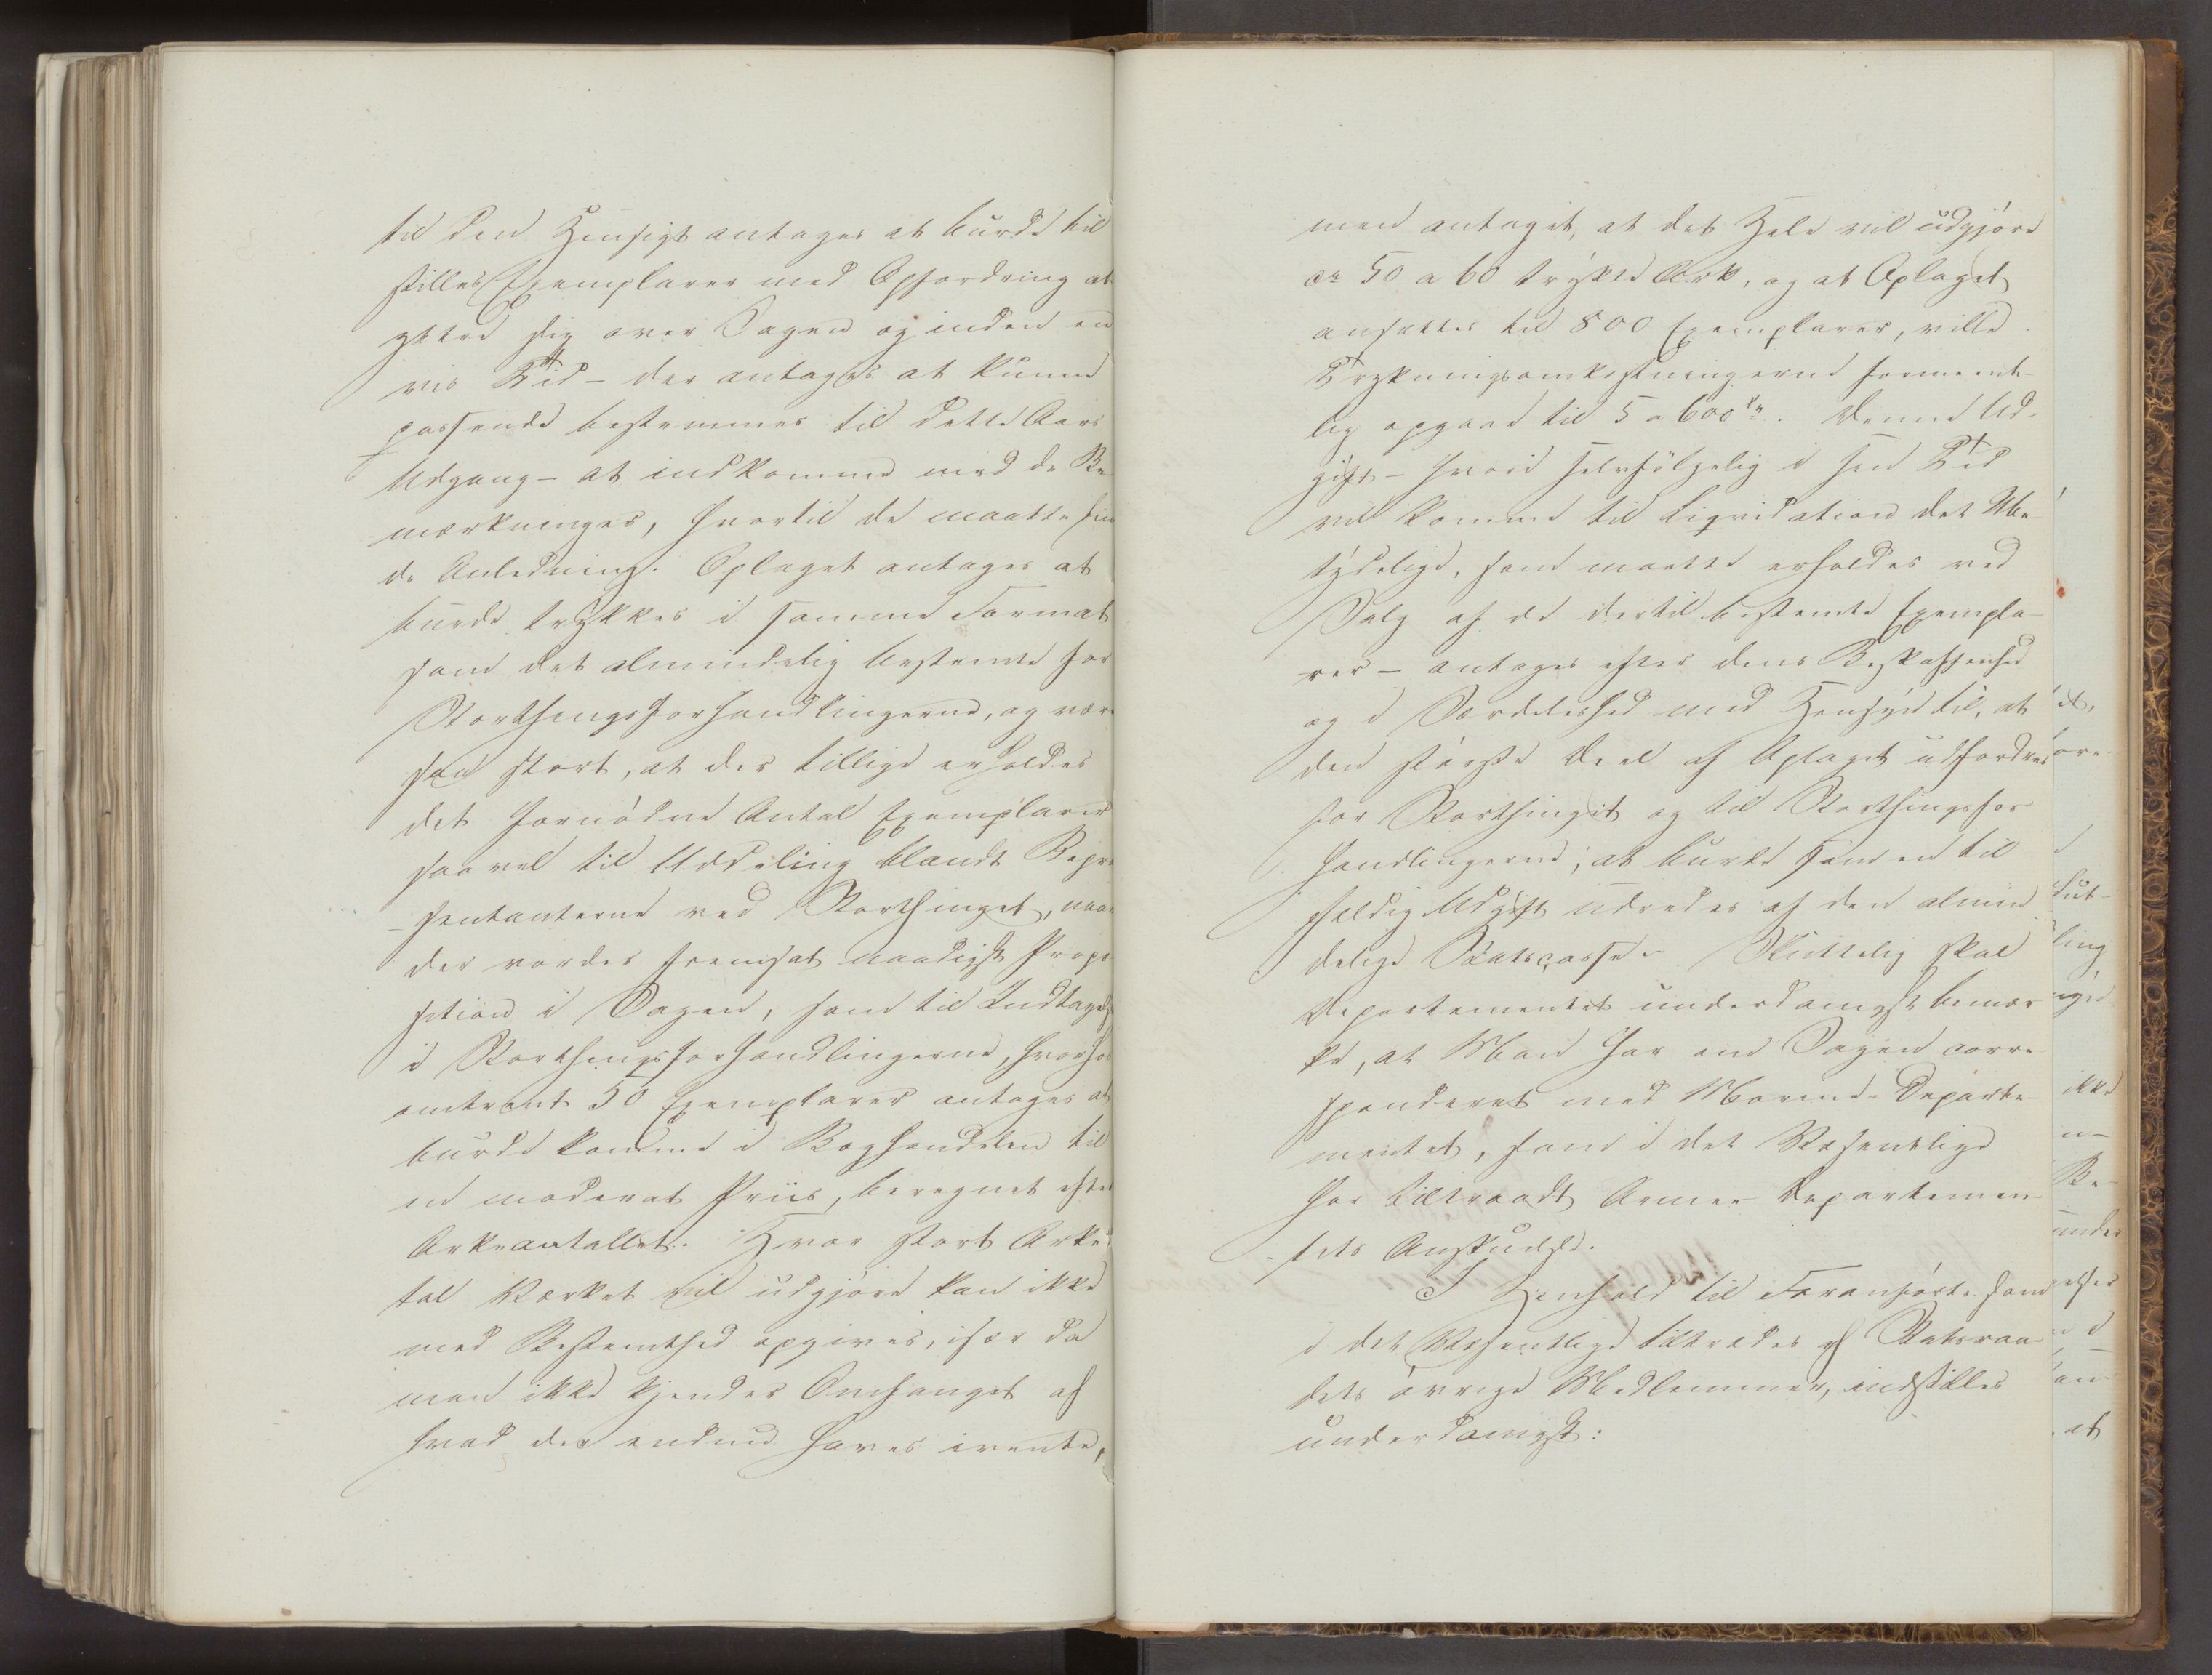 til den Hensigt antages at burde til
stilles Exemplarer med Opfordring at
yttre sig over Sagen og inden en
vis Tid – der antages at kunne
passende bestemmes til dette Aars
Udgang – at indkomme med de Be
mærkninger, hvortil de maatte fin
de Anledning. Oplaget antages at
burde trykkes i samme Format
som det almindelig bestemte for
Storthingsforhandlingerne, og være
saa stort, at der tillige erholdes
det fornødne Antal Exemplarer
saavel til Uddeling blandt Repræ
sentanterne ved Storthinget, naar
der vorder fremsat naadigst Propo
sition i Sagen, som til Indtagelse
i Storthingsforhandlingerne, hvorhos
omtrent 50 Exemplarer antages at
burde komme i Boghandelen til
en moderat Priis, beregnet efter
Arkeantallet. Hvor stort Arke
tal Værket vil udgjøre kan ikke
med Bestemthed opgives, især da
man ikke kjender Omfanget af
hvad der endnu haves ivente,
men antaget, at det Hele vil udgjøre
ca 50 a 60 trykte Ark, og at Oplaget
ansættes til 800 Exemplarer, ville
Trykningsomkostningerne formeent-
lig opgaae til 5 a 600 Spd. Denne Ud-
gift – hvori selvfølgelig i sin Tid
vil komme til Liqvidation det Ube
tydelige, som maatte erholdes ved
Salg af de dertil bestemte Exempla-
rer – antages efter dens Beskaffenhed
og i Særdeleshed med Hensyn til, at
den største Deel af Oplaget udfordres
for Storthinget og til Storthingsfor
handlingerne, at burde som en til
fældig Udgift udredes af den almin
delige Statscasse. Sluttelig skal
Departementet underdanigst bemær
ke, at Man har om Sagen corre
sponderet med Marine-Departe
mentet, som i det Væsentlige
har tiltraadt Armee-Departemen
tets Anskuelse.
I Henhold til Foranførte som
i det Væsentlige tiltrædes af Statsraa-
dets øvrige Medlemmer, indstilles
underdanigst: